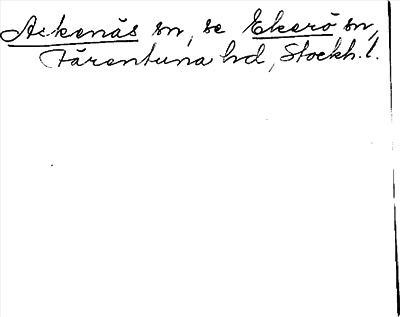 Askenäs sn, se Ekerö sn,
Färentuna hd, Stockh. l.